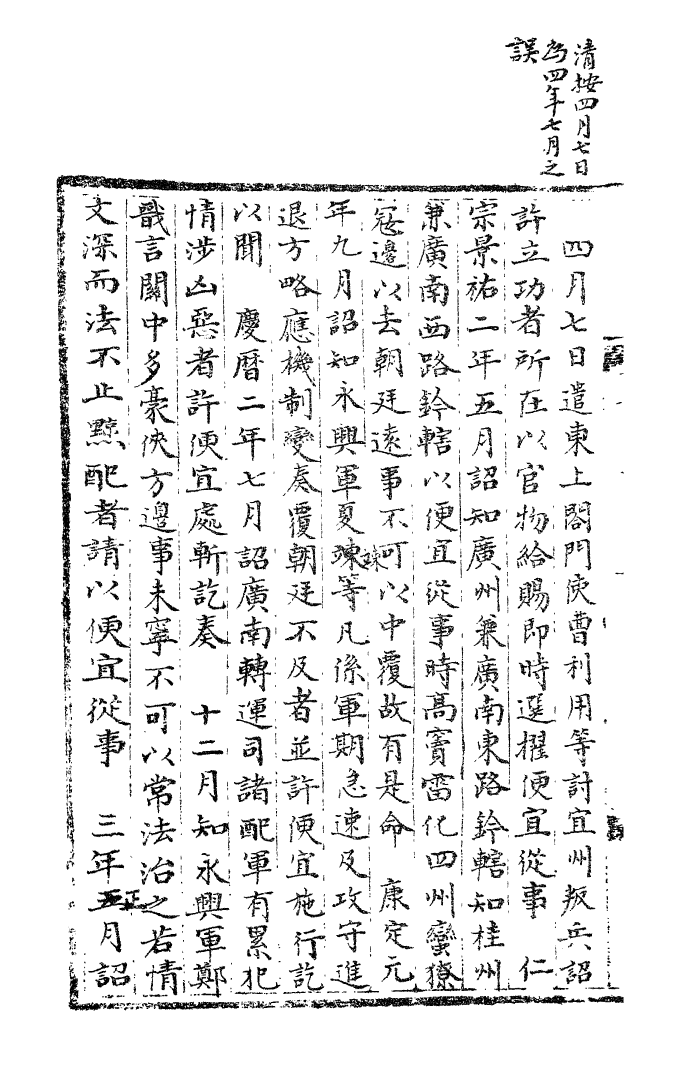 清按四月七日
為四年七月之
誤
四月七日遣東上閤門使曹利用等討宜州叛兵詔
許立功者所在以官物給賜即時選擢便宜從事　仁
宗景祐二年五月詔知廣州兼廣南東路鈐轄知桂州
兼廣南西路鈐轄以便宜從事時高竇雷化四州蠻獠
寇邊以去朝廷遠事不可以中覆故有是命　康定元
年九月詔知永興軍夏竦竦等凡係軍期急速及攻守進
退方略應機制變奏覆朝廷不及者並許便宜施行訖
以聞　慶曆二年七月詔廣南轉運司諸配軍有累犯
情涉凶惡者許便宜處斬訖奏　十二月知永興軍鄭
戩言關中多豪俠方邊事未寧不可以常法治之若情
文深而法不止黥配者請以便宜從事　三年五正月詔